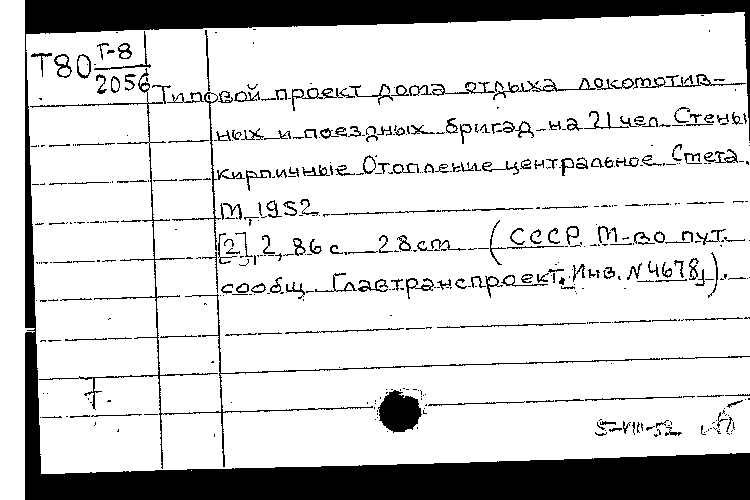 Т80 Т-8
2056
Типовой проект дома отдыха локомотив-
ных и поездных бригад на 21 чел. Стены
кирпичные Отопление центральное Смета.
М, 1952
[2], 2, 86 с. 28 cm (СССР. М-во пут.
сообщ. Главтранспроект. Инв. N 4678).
Т.
5-VIII-52